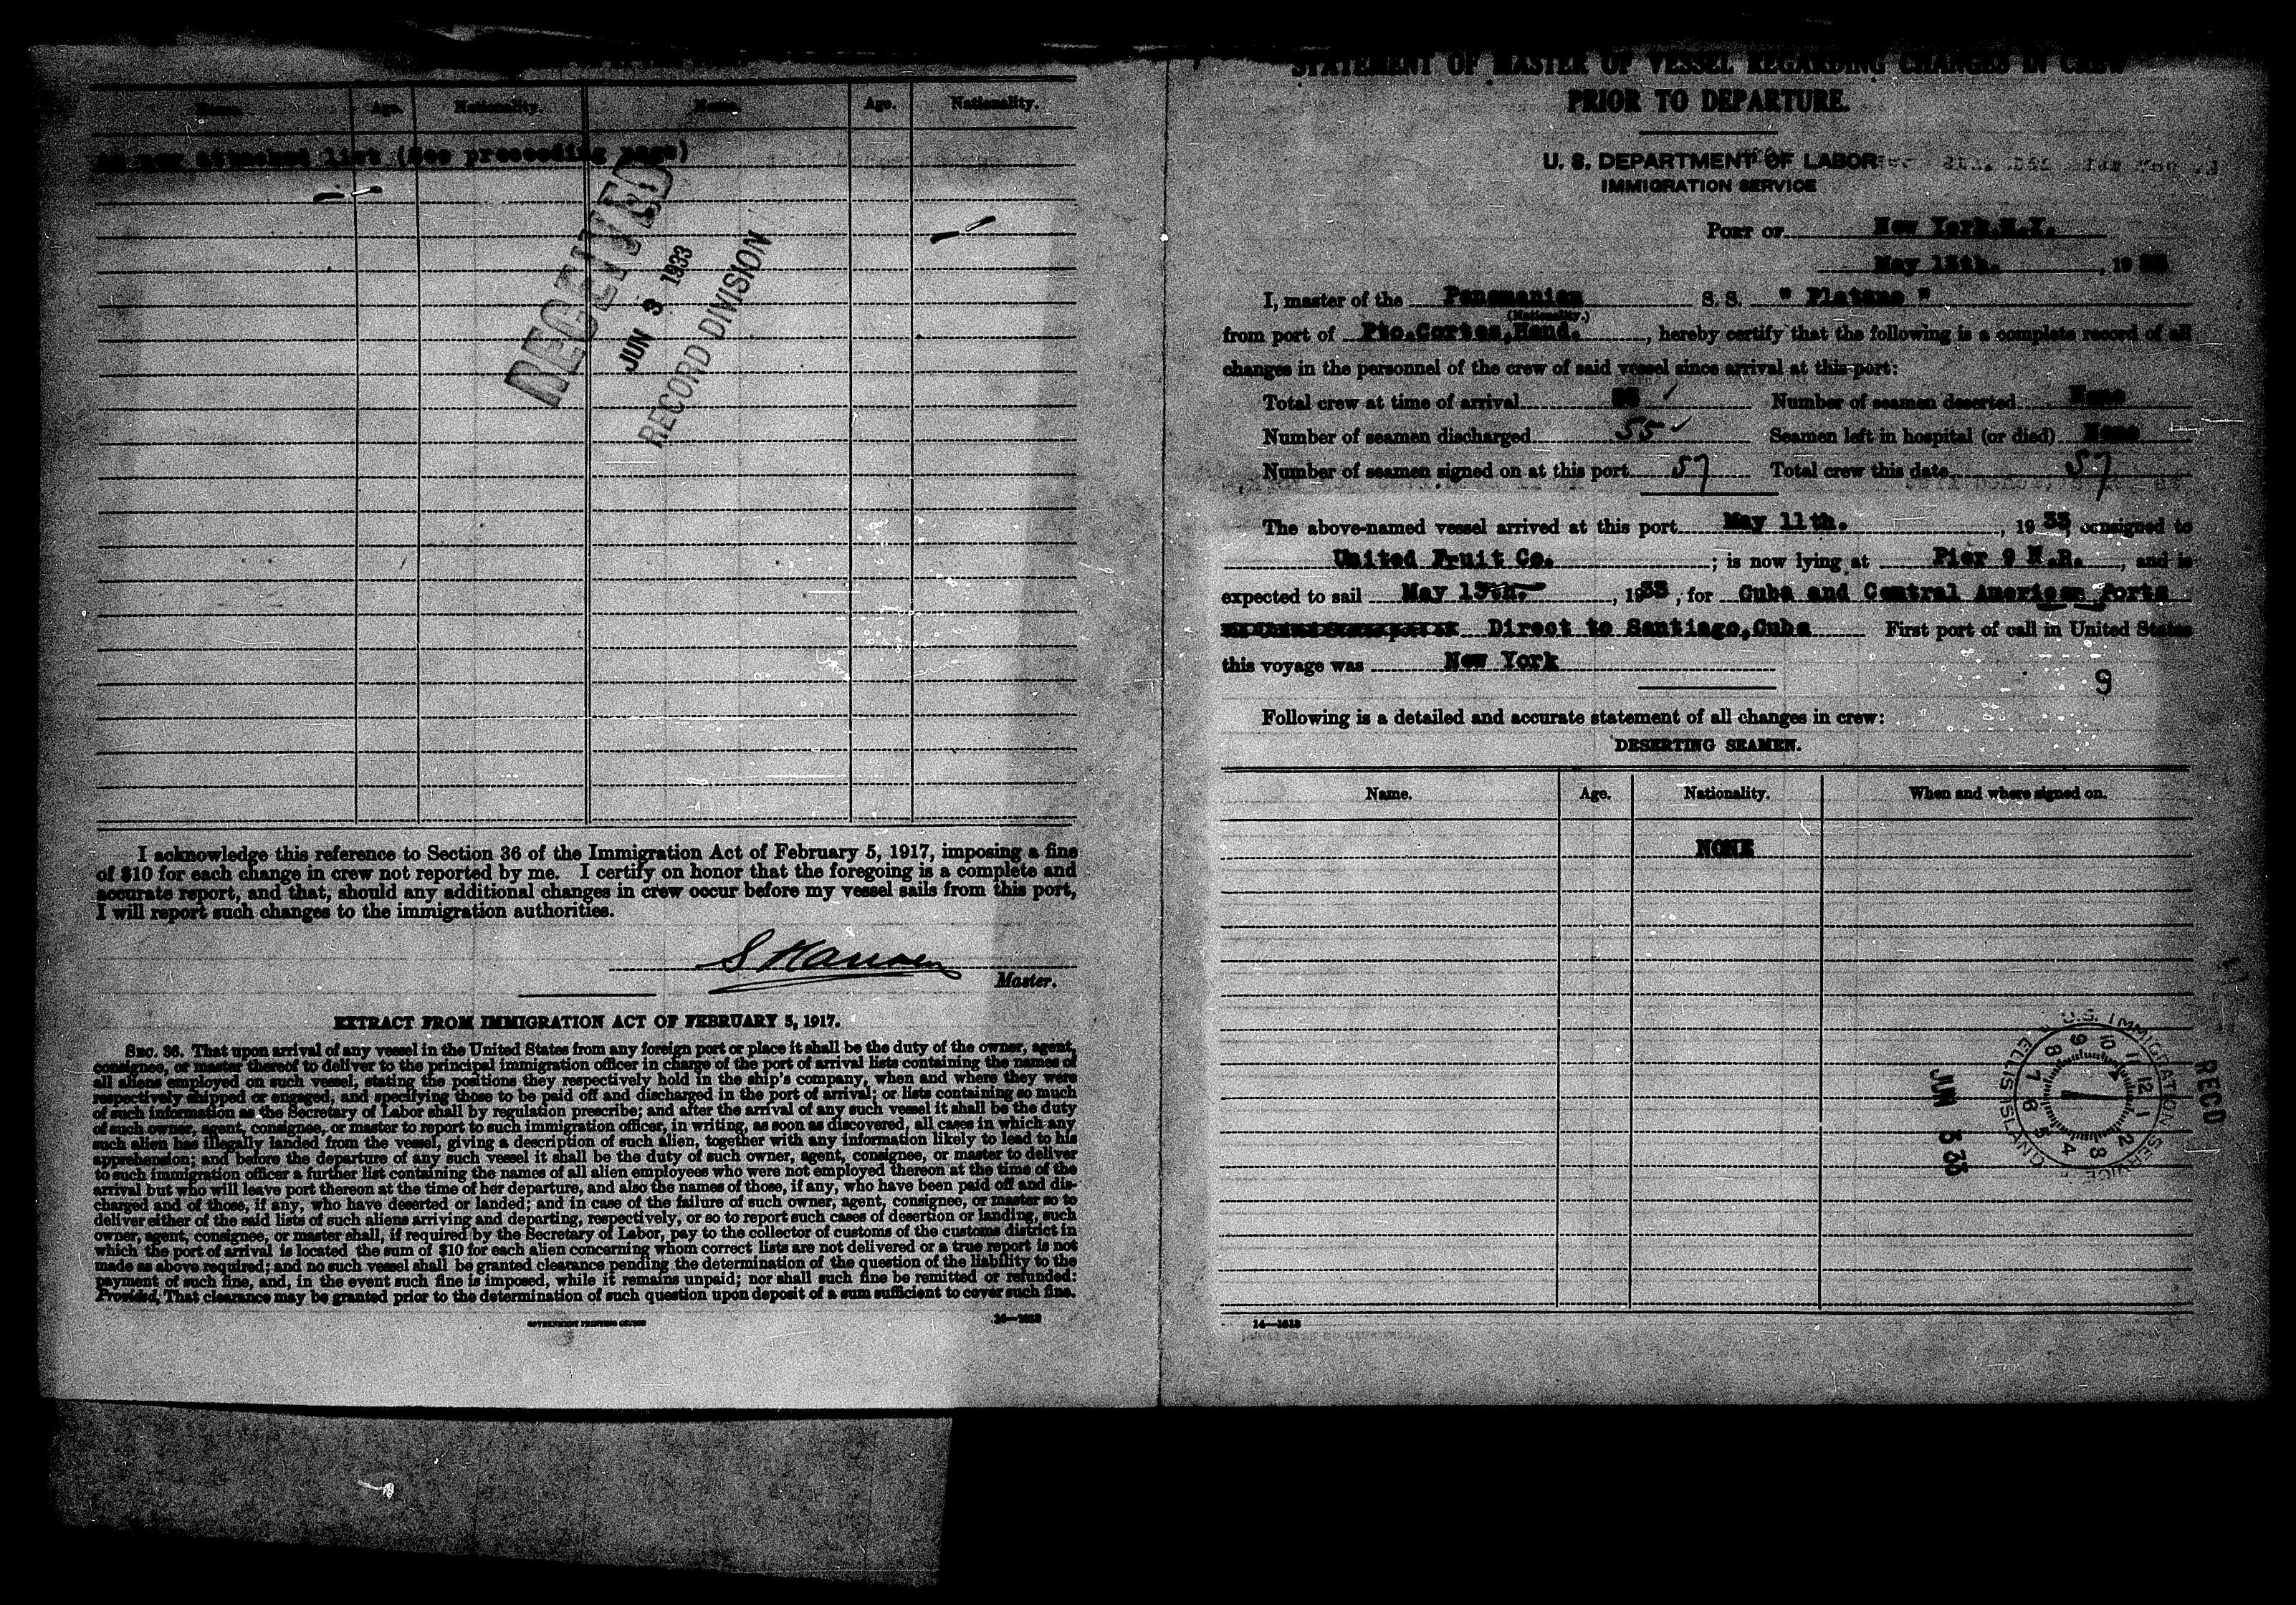 Name. Age. Nationality. Name. Age. Nationality.
As per attached list (See preceeding page)
RECEIVED
JUN 3 1933
RECORD DIVISION
I acknowledge this reference to Section 36 of the Immigration Act of February 5, 1917, imposing a fine
of $10 for each change in crew not reported by me. I certify on honor that the foregoing is a complete and
accurate report, and that, should any additional changes in crew occur before my vessel sails from this port,
I will report such changes to the immigration authorities.
Master.
EXTRACT FROM IMMIGRATION ACT OF FEBRUARY 5, 1917.
SEC. 36. That upon arrival of any vessel in the United States from any foreign port or place it shall be the duty of the owner, agent,
consignee, or master thereof to deliver to the principal immigration officer in charge of the port of arrival lists containing the names of
all aliens employed on such vessel, stating the positions they respectively hold in the ship's company, when and where they were
respectively shipped or engaged, and specifying those to be paid off and discharged in the port of arrival; or lists containing so much
of such information as the Secretary of Labor shall by regulation prescribe; and after the arrival of any such vessel it shall be the duty
of such owner, agent, consignee, or master to report to such immigration officer, in writing, as soon as discovered, all cases in which any
such alien has illegally landed from the vessel, giving a description of such alien, together with any information likely to lead to his
apprehension; and before the departure of any such vessel it shall be the duty of such owner, agent, consignee, or master to deliver
to such immigration officer a further list containing the names of all alien employees who were not employed thereon at the time of the
arrival but who will leave port thereon at the time of her departure, and also the names of those, if any, who have been paid off and dis-
charged and of those, if any, who have deserted or landed; and in case of the failure of such owner, agent, consignee, or master so to
deliver either of the said lists of such aliens arriving and departing, respectively, or so to report such cases of desertion or landing, such
owner, agent, consignee, or master shall, if required by the Secretary of Labor, pay to the collector of customs of the customs district in
which the port of arrival is located the sum of $10 for each alien concerning whom correct lists are not delivered or a true report is not
made as above required; and no such vessel shall be granted clearance pending the determination of the question of the liability to the
payment of such fine, and, in the event such fine is imposed, while it remains unpaid; nor shall such fine be remitted or refunded:
Provided, That clearance may be granted prior to the determination of such question upon deposit of a sum sufficient to cover such fine.
GOVERNMENT PRINTING OFFICE 14—1613
STATEMENT OF MASTER OF VESSEL REGARDING CHANGES IN CREW
PRIOR TO DEPARTURE.
U. S. DEPARTMENT OF LABOR
IMMIGRATION SERVICE
PORT OF New York,N.Y.
May 13th., 19 33
I, master of the Panamanian S. S. " Platano "
(Nationality.)
from port of Pto.Cortes,Hond., hereby certify that the following is a complete record of all
changes in the personnel of the crew of said vessel since arrival at this port:
Total crew at time of arrival 55 Number of seamen deserted None
Number of seamen discharged 55 Seamen left in hospital (or died) None
Number of seamen signed on at this port 57 Total crew this date 57
The above-named vessel arrived at this port May 11th., 19 33, consigned to
United Fruit Co.; is now lying at Pier 9 N.R., and is
expected to sail May 13th., 1933, for Cuba and Central American Ports
Direct to Santiago,Cuba First port of call in United States
this voyage was New York
9
Following is a detailed and accurate statement of all changes in crew:
DESERTING SEAMEN.
Name. Age. Nationality. When and where signed on.
NONE
U.S. IMMIGRATION SERVICE
ELLIS ISLAND
1 2 3 4 5 6 7 8 9 10 11 12
RECD
JUN 3 33
14—1613